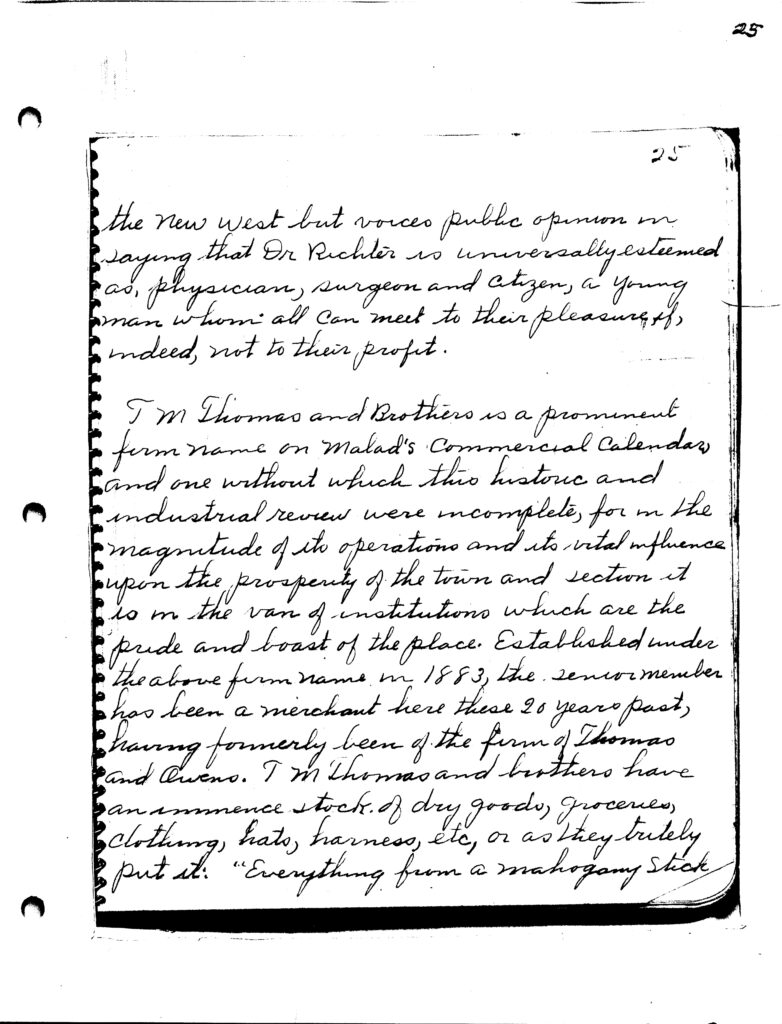 25
25
the New West but voices public opinion in
saying that Dr Richter is universally esteemed
as, physician, surgeon and citizen, a young
man whom all can meet to their pleasure, if,
indeed, not to their profit.
T M Thomas and Brothers is a prominent
firm name on Malad's Commercial Calendar,
and one without which this historic and
industrial review were incomplete, for in the
magnitude of its operations and its vital influence
upon the prosperity of the town and section it
is in the van of institutions which are the
pride and boast of the place. Established under
the above firm name in 1883, the senior member
has been a merchant here these 20 years past,
having formerly been of the firm of Thomas
and Owens. T M Thomas and brothers have
an immence stock of dry goods, groceries,
clothing, hats, harness, etc, or as they tritely
put it: "Everything from a mahogany Stick